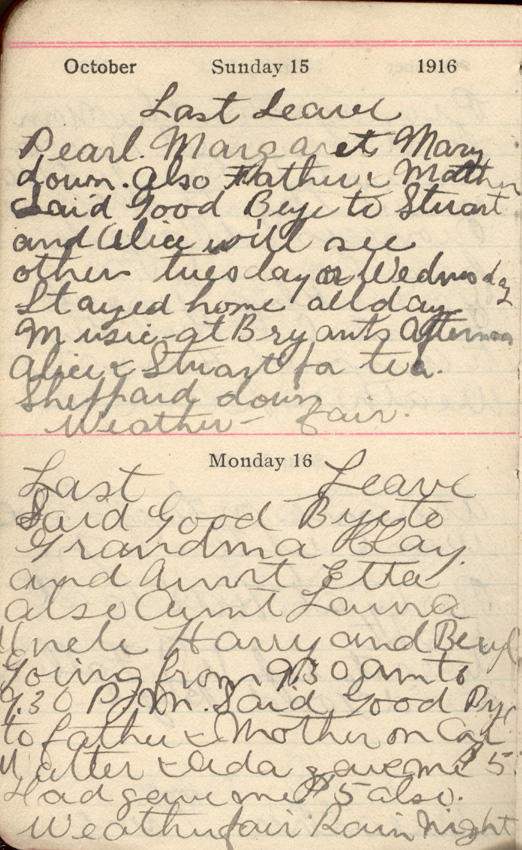 October Sunday 15 1916
Last Leave
Pearl. Margaret Mary
down. also Father & Mother
Said Good Bye to Stuart
and Alice will see
others tuesday or Wednesday
Stayed home all day
Music at Bryants Afternoon
Alice & Stuart for tea.
Sheppard down
Weather - fair.
Monday 16
Last Leave
Said Good Bye to
Grandma Clay.
and Aunt Etta
also Aunt Laura
Uncle Harry and Beryl
Going from 9.30 am to
9.30 P.M. Said Good Bye
to father & Mother on Car
Walter & Ida gave me $5
Had gave me $5 also.
Weather fair Rain Night